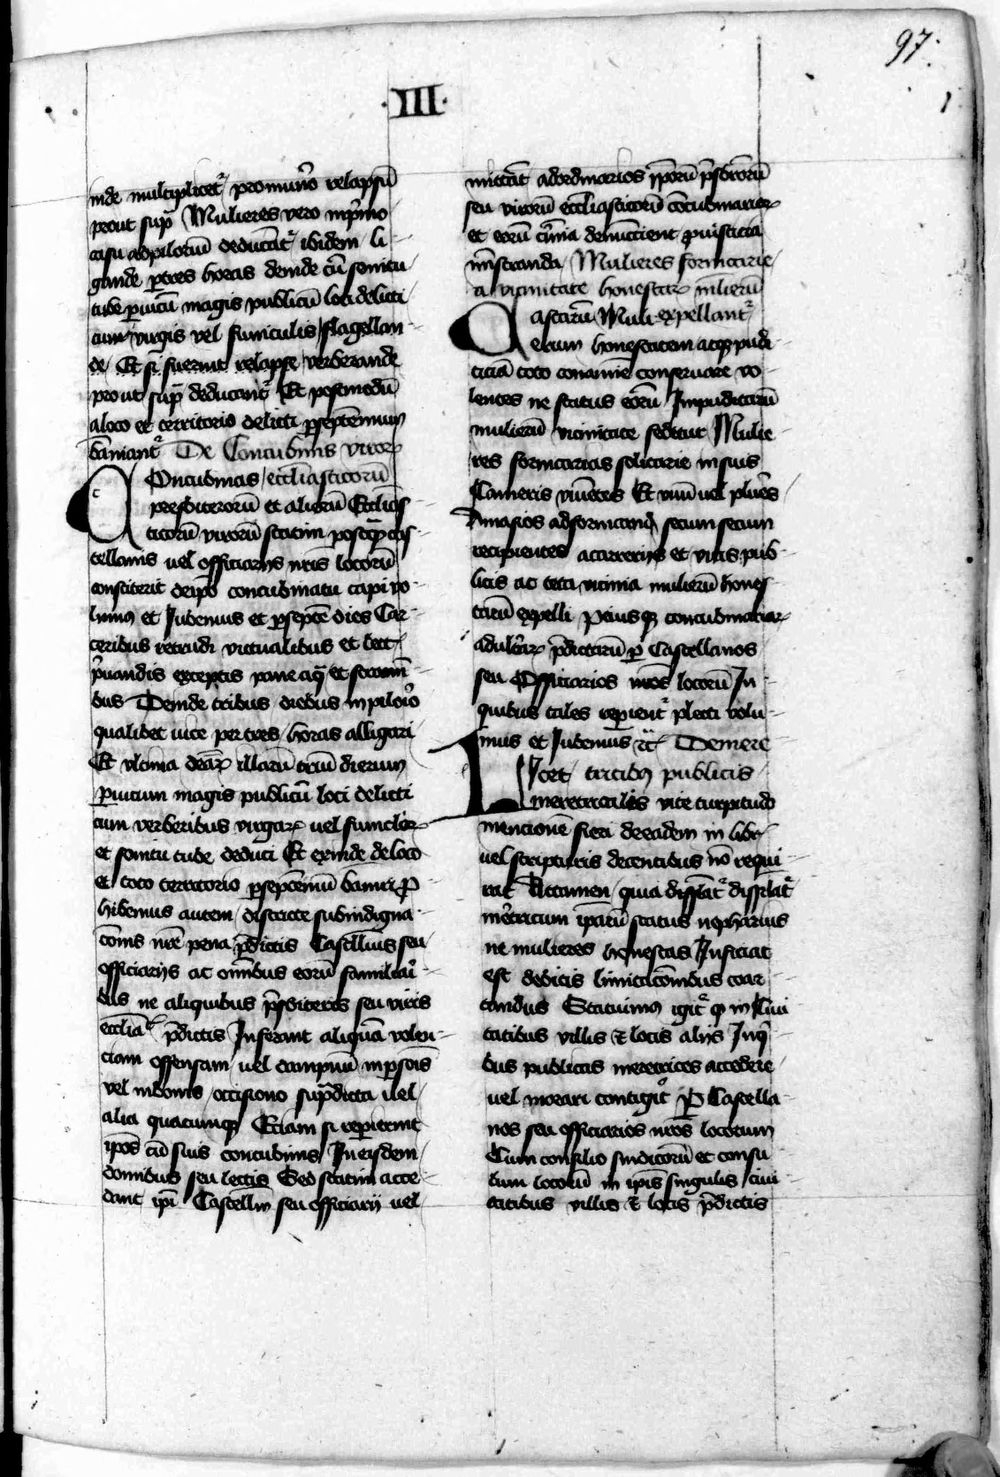 97.
.III.
inde multiplicet᷑ pro numͦo relapsū
prout supͣ Mulieres vero in pͥmo
casu ad piloriū deducāt᷑ ibidem li-
gande p tres horas deinde cū sonitu
tube p uicū magis publicū loci delicti
cum virgis vel funiculis flagellan-
de Et si fuerint relapse verberande
prout supͣ deducant᷑ Et postmodū
a loco et territorio delicti p septēnium
bāniant᷑ De Concubinis viroꝝ
Concubinas eccl̄iasticorū
presbiterorū et aliorū Eccl̄ias
ticorū virorū statim postqͣ cas-
tellanis uel officiariis nr̄is locorū
constiterit de ip̄o concubinatu capi vo-
lumus et Iubemus et p septē dies Car-
ceribus retrudi victualibus et lect-
pͥuandis exceptis pane aqͣ et stramī-
bus Deinde tribus diebus in pilorio
qualibet vice per tres horas alligari
Et vltima dieꝝ illarū triū dierum
p uicum magis publicū loci delicti
cum verberibus virgaꝝ uel funicloꝝ
et sonitu tube deduci Et exinde de loco
et toto territorio p septēniū bāniri Pro
hibemus autem districte sub indigna-
cōnis nr̄e pena p̄dictis Castellanis seu
officiariis ac om̄ibus eorū familiari-
bus ne aliquibus p̄sbiteris seu viris
eccl̄iast p̄dictis Inferant aliquā violen-
ciam offensam uel dampnū in p̄sonis
vel in bonis occasione supͣdicta uel
alia quacumqꝫ Eciam si reperirent
ip̄os cū suis concubinis In eisdem
domibus seu lectis Sed statim acce-
dant ip̄i Castellani seu officiarii uel
mittāt ad ordinarios ip̄orū p̄sbiterorū
seu virorū eccl̄iasticorū concubinarioꝝ
et eorū cͥmina denuncient p iusticia
ministranda Mulieres fornicarie
a vicinitate honestaꝝ mulierū
Castarū Muli expellant᷑
etum honestatem atqꝫ pudi-
ticiā toto conamine conseruare vo-
lentes ne status eorū Impudicarū
mulierū vicinitate fedetur Mulie-
res fornicarias solitarie in suis
Cameris viuētes Et vnū uel plures
Amasios ad fornicand secum secum
recipientes a carreriis et viis pub-
licis ac tecti vicinia mulierū hones
tarū expelli Penisqꝫ concubinariaꝝ
adulteraꝝ p̄dictarū p Castellanos
seu Officiarios nr̄os locorū In-
quibus tales repient᷑ plecti volu-
mus et Iubemus ꝛc̄ De mere
Licet tricibus publicis
meretricalis vite turpitudo
mencionē fieri de eadem in libr
uel scripturis decentibus nō requi-
rat Attamen quia
mͤtricum ip̄arū status nepharius
ne mulieres honestas Inficiat
est debitis limitacōnibus coar-
tandus Statuimus igit᷑ qꝫ in Ciui
tatibus villis ⁊ locis aliis In qͥ
bus publicas meretrices accedere
uel morari contigit Per Castella-
nos seu officiarios nr̄os locorum
Cum consilio sindicorū et consu
lum locorū in ip̄is singulis ciui-
tatibus villis ⁊ locis p̄dictis